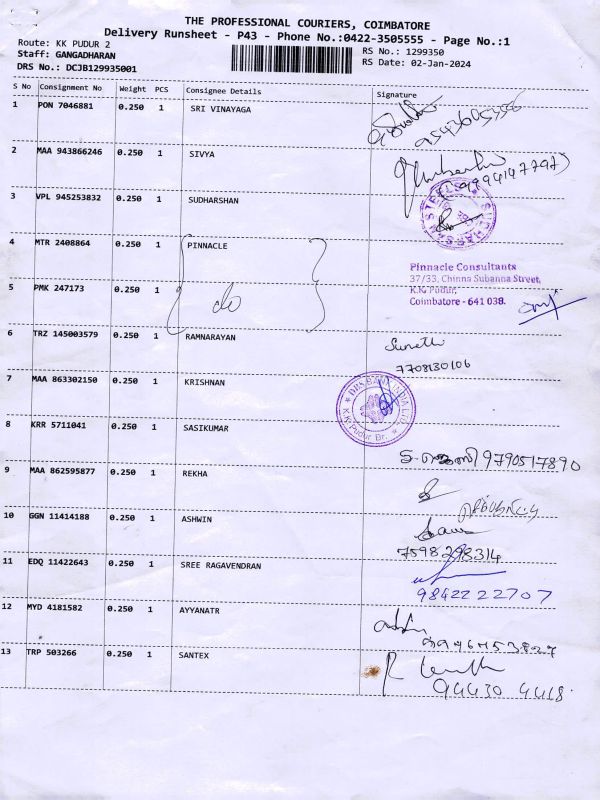 THE PROFESSIONAL COURIERS, COIMBATORE
Delivery Runsheet - P43 - Phone No.:0422-3505555 - Page No.:1
Route: KK PUDUR 2
RS No.: 1299350
Staff: GANGADHARAN
RS Date: 02-Jan-2024
DRS No.: DCJB129935001
S No Consignment No Weight PCS Consignee Details Signature
1 PON 7046881 0.250 1 SRI VINAYAGA
2 MAA 943866246 0.250 1 SIVYA
9994147797
3 VPL 945253832 0.250 1 SUDHARSHAN
4 MTR 2408864 0.250 1 PINNACLE
Pinnacle Consultants
37/33, Chinna Subanna Street,
K.K. Pudur,
Coimbatore - 641 038.
5 PMK 247173 0.250 1 do
6 TRZ 145003579 0.250 1 RAMNARAYAN
7708130106
7 MAA 863302150 0.250 1 KRISHNAN
DBS BANK INDIA LTD.
K.K. Pudur Br.
8 KRR 5711041 0.250 1 SASIKUMAR
9790517890
9 MAA 862595877 0.250 1 REKHA
10 GGN 11414188 0.250 1 ASHWIN
7598298314
11 EDQ 11422643 0.250 1 SREE RAGAVENDRAN
9842222707
12 MYD 4181582 0.250 1 AYYANATR
13 TRP 503266 0.250 1 SANTEX
94430 4418